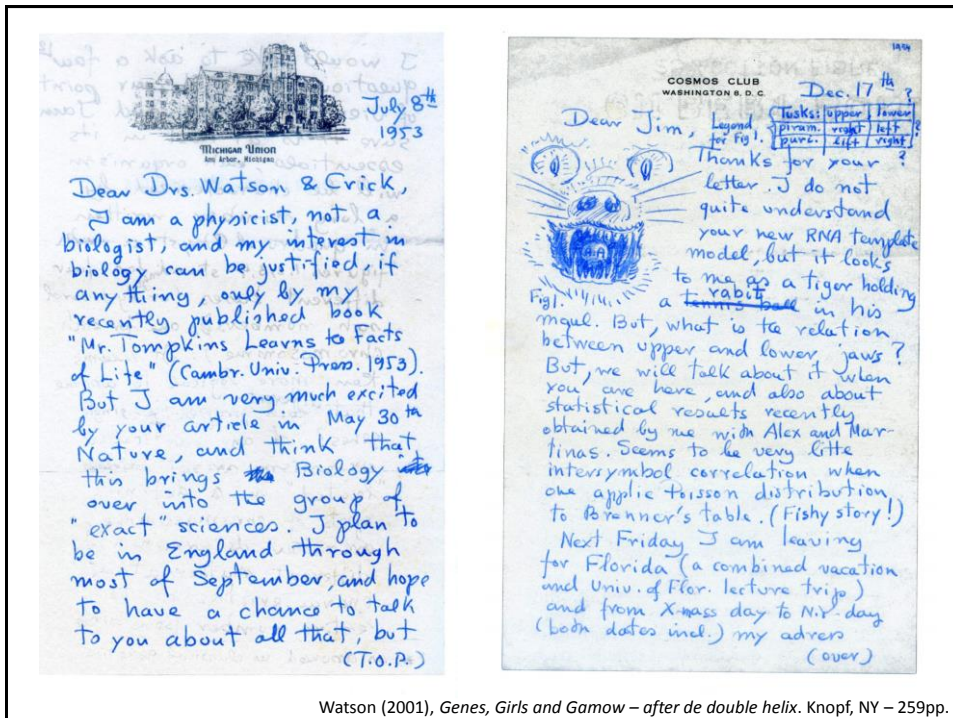 MICHIGAN UNION
Ann Arbor, Michigan
July 8th
1953
Dear Drs. Watson & Crick,
I am a physicist, not a
biologist, and my interest in
biology can be justified, if
any thing, only by my
recently published book
"Mr. Tompkins Learns to Facts
of Life" (Cambr. Univ. Press. 1953).
But I am very much excited
by your article in May 30th
Nature, and think that
this brings Biology
over into the group of
"exact" sciences. I plan to
be in England through
most of September, and hope
to have a chance to talk
to you about all that, but
(T.O.P.)
1954
COSMOS CLUB
WASHINGTON 5, D.C.
Dec. 17th
Dear Jim,
Legend
for Fig 1.
Tusks: upper lower ?
piram. right left ?
puri. left right ?
Thanks for your
letter. I do not
quite understand
your new RNA template
model, but it looks
to me as a tiger holding
Fig 1.
a tennis ball rabit in his
moul. But, what is te relation
between upper and lower jaws?
But, we will talk about it when
you are here, and also about
statistical results recently
obtained by me with Alex and Mar-
tinas. Seems to be very litte
intersymbol correlation when
one applie Poisson distribution
to Brenner's table. (Fishy story!)
Next Friday I am leaving
for Florida (a combined vacation
and Univ. of Flor. lecture trip)
and from X-mass day to N.Y.-day
(both dates incl.) my adres
(over)
Watson (2001), Genes, Girls and Gamow – after de double helix. Knopf, NY – 259pp.